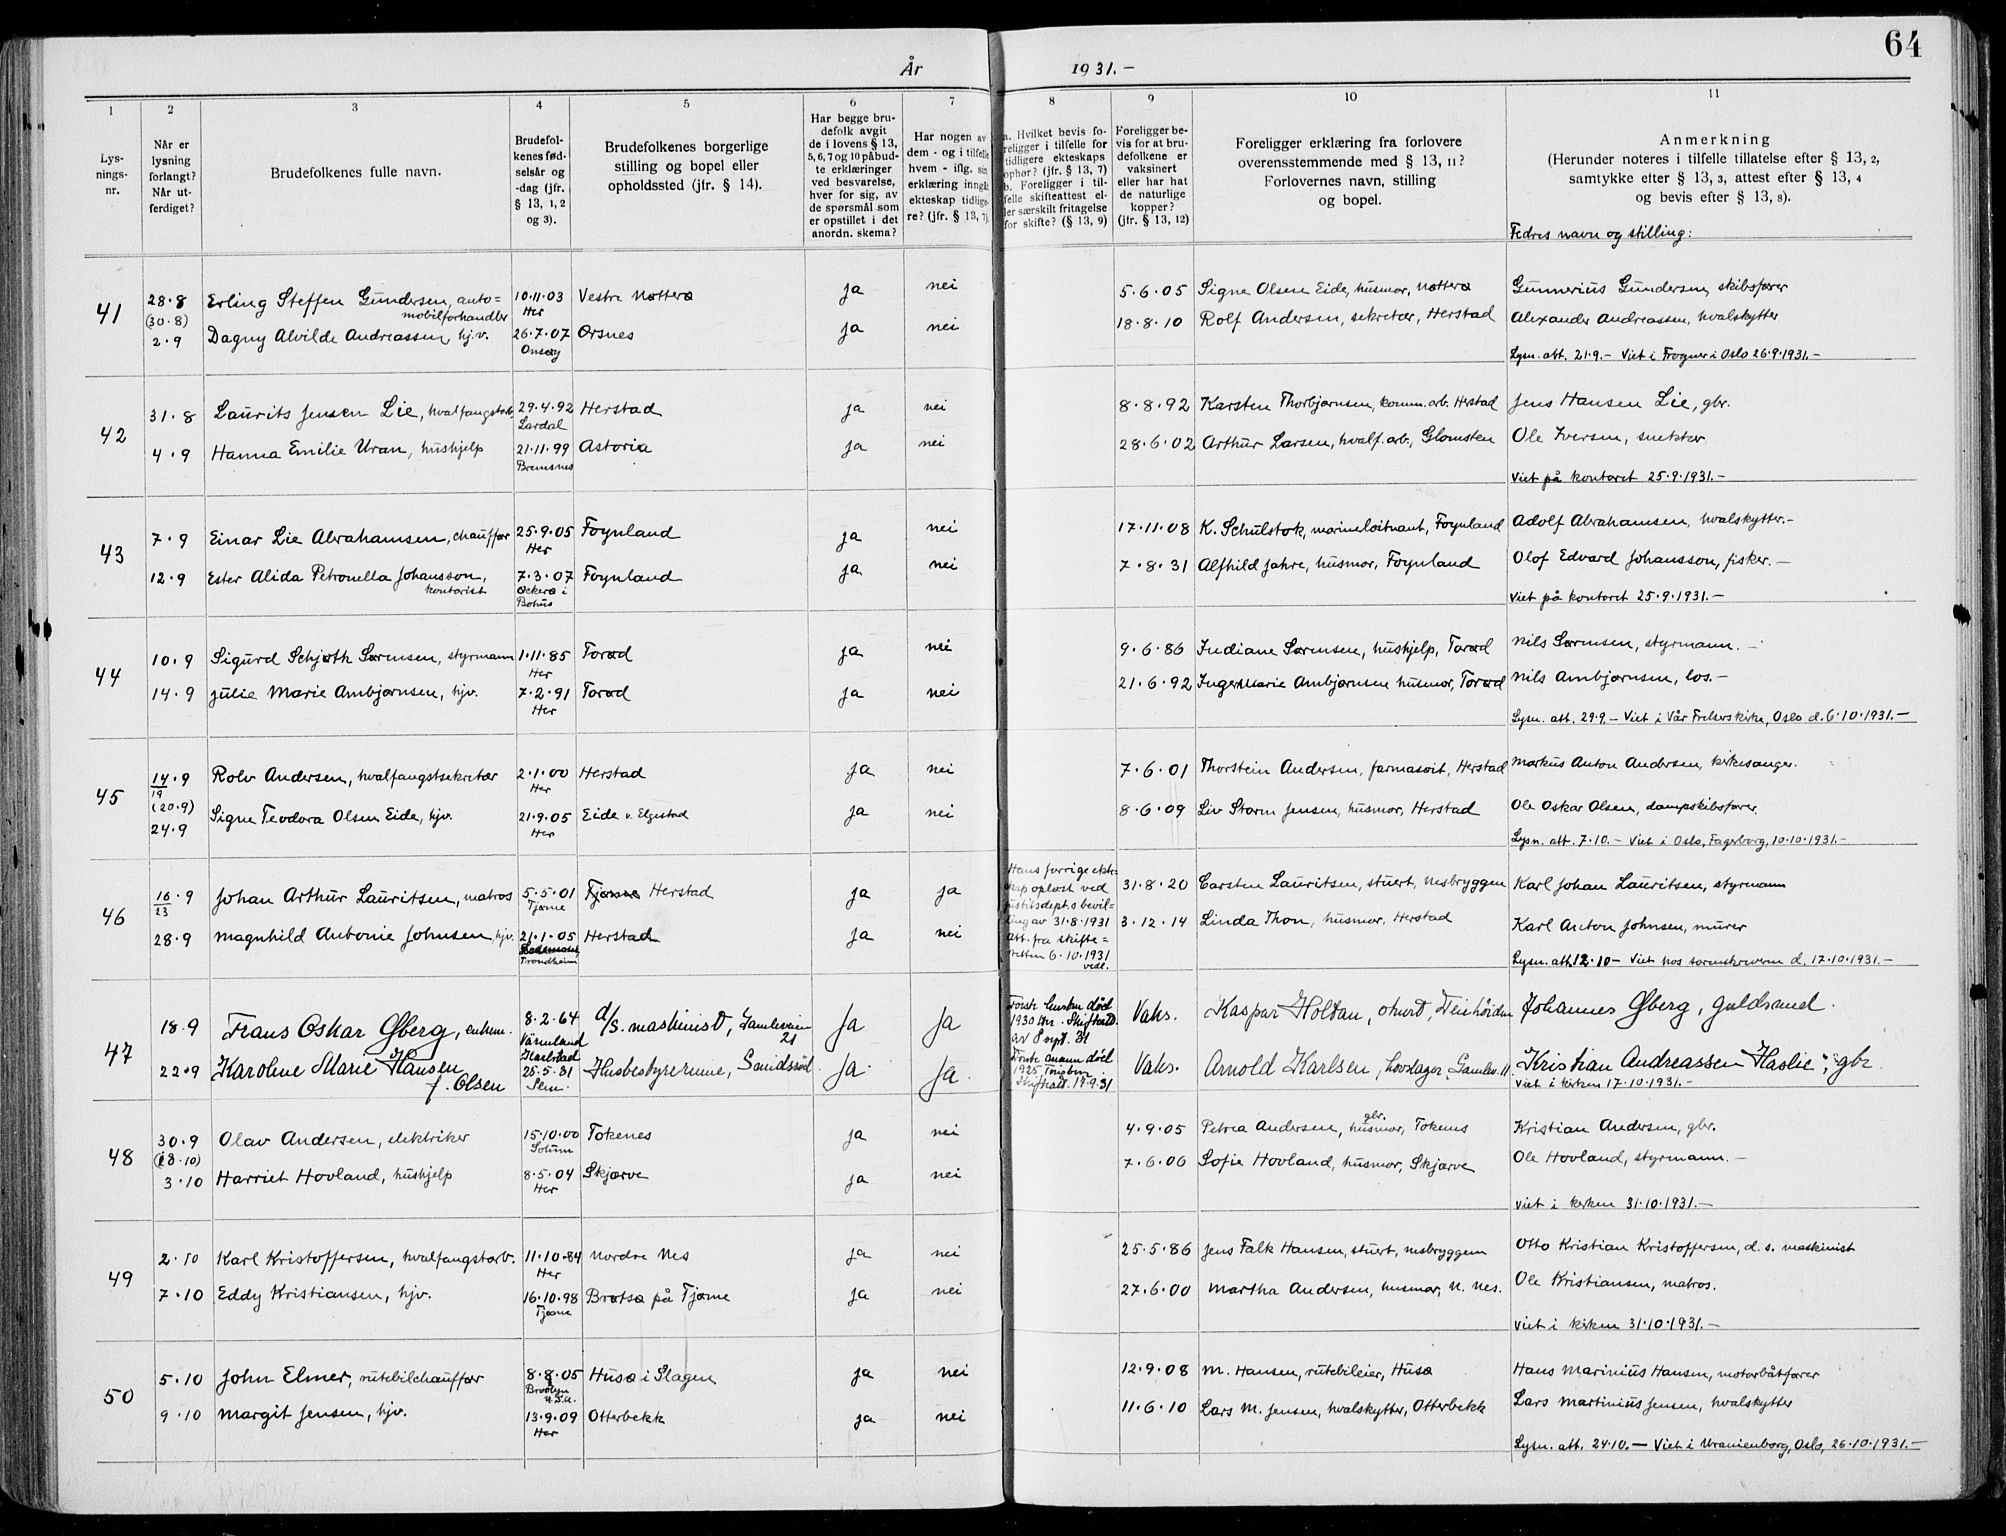 64
År 1931.-
1 2 3 4 5 6 7 8 9 10 11
Lysningsnr.
Når er lysning forlangt? Når utferdiget?
Brudefolkenes fulle navn.
Brudefolkenes fødselsår og -dag (jfr. § 13, 1, 2 og 3).
Brudefolkenes borgerlige stilling og bopel eller opholdssted (jfr. § 14).
Har begge brudefolk avgit de i lovens § 13, 5, 6, 7 og 10 påbudte erklæringer ved besvarelse, hver for sig, av de spørsmål som er opstillet i det anordn. skema?
Har nogen av dem - og i tilfelle hvem - iflg. sin erklæring inngått ekteskap tidligere? (jfr. § 13, 7)
a. Hvilket bevis foreligger i tilfelle for tidligere ekteskaps ophør? (jfr. § 13, 7) b. Foreligger i tilfelle skifteattest eller særskilt fritagelse for skifte? (§ 13, 9)
Foreligger bevis for at brudefolkene er vaksinert eller har hat de naturlige kopper? (jfr. § 13, 12)
Foreligger erklæring fra forlovere overensstemmende med § 13, 11? Forlovernes navn, stilling og bopel.
Anmerkning (Herunder noteres i tilfelle tillatelse efter § 13, 2, samtykke efter § 13, 3, attest efter § 13, 4 og bevis efter § 13, 8).
Fedres navn og stilling:
41 28·8 Erling Steffen Gundersen, auto= mobilforhandler 10·11·03 Her Vestre Nøtterø ja nei 5·6·05 Signe Olsen Eide, husmor, Nøtterø Gunnerius Gundersen, skibsfører
(30·8) 2·9 Dagny Alvilde Andreassen, hj.v. 26·7·07 Onsøy Ørsnes ja nei 18·8·10 Rolf Andersen, sekretær, Herstad Alexander Andreassen, hvalskytter
Lysn. att. 21·9.- Viet i Frogner i Oslo 26·9·1931.-
42 31·8 Laurits Jensen Lie, hvalfangstarb. 29·4·92 Lardal Herstad ja nei 8·8·92 Karsten Thorbjørnsen, komm. arb. Herstad Jens Hansen Lie, gbr.
4·9 Hanna Emilie Uran, hushjelp 21·11·99 Bremsnes Astoria ja nei 28·6·02 Arthur Larsen, hvalf. arb., Glomsten Ole Iversen, snekker
Viet på kontoret 25·9·1931.-
43 7·9 Einar Lie Abrahamsen, chauffør 25·9·05 Her Foynland ja nei 17·11·08 K. Schulstok, marineløitnant, Foynland Adolf Abrahamsen, hvalskytter.-
12·9 Ester Alida Petronella Johansson, kontorist 7·3·07 Öckerö i Bohus Foynland ja nei 7·8·31 Alfhild Jahre, husmor, Foynland Olof Edvard Johansson, fisker.-
Viet på kontoret 25·9·1931.-
44 10·9 Sigurd Schjøth Sørensen, styrmann 1·11·85 Her Torød ja nei 9·6·86 Indiane Sørensen, hushjelp, Torød Nils Sørensen, styrmann.-
14·9 Julie Marie Ambjørnsen, hjv. 7·2·91 Her Torød ja nei 21·6·92 Inger Marie Ambjørnsen husmor, Torød Nils Ambjørnsen, los.-
Lysn. att. 29·9.- Viet i Vår Frelserskirke, Oslo d. 6·10·1931.-
45 14/19·9 Rolv Andersen, hvalfangstsekretær 2·1·00 Her Herstad ja nei 7·6·01 Thorstein Andersen, farmasøit, Herstad Markus Anton Andersen, kirkesanger.
(20·9) 24·9 Signe Teodora Olsen Eide, hjv. 21·9·05 Her Eide v. Elgestad ja nei 8·6·09 Liv Storm Jensen, husmor, Herstad Ole Oskar Olsen, dampskibsfører.
Lysn. att. 7·10.- Viet i Oslo, Fagerborg, 10·10·1931.-
46 16/23·9 Johan Arthur Lauritsen, matros 5·5·01 Tjøme Tjøme Herstad ja ja Hans forrige ekteskap opløst ved justitsdept.s bevilling av 31·8·1931 31·8·20 Carsten Lauritsen, stuert, Nesbryggen Karl Johan Lauritsen, styrmann
28·9 Magnhild Antonie Johnsen, hjv. 21·1·05 Trondheim Herstad ja nei att. fra skifte= retten 6·10·1931 vedl. 3·12·14 Linda Thon, husmor, Herstad Karl Anton Johnsen, murer
Lysn. att. 12·10- Viet hos sorenskriveren d. 17·10·1931.-
47 18·9 Frans Oskar Øberg, enkem. 8·2·64 Värmland Karlstad d/s. maskinist, Gamleveien 21 Ja Ja Første hustru død 1930 Skifteatt. av 8 sept. 31 Vaks. Kaspar Holtan, Johannes Øberg, guldsmed.
22·9 Karoline Marie Hansen f. Olsen 25·5·81 Sem. Husbestyrerinne, Ja Ja. Første mann død 1925 Skifteatt. 17.9.31 Vaks. Arnold Karlsen, hovslager, Gamlev. 11. Kristian Andreassen Haslie, gbr.
Viet i kirken 17·10·1931.-
48 30·9 Olav Andersen, elektriker 15·10·00 Solum Tokenes ja nei 4·9·05 Petrea Andersen, gbr. husmor, Tokenes Kristian Andersen, gbr.
3·10 Harriet Hovland, hushjelp 8·5·04 Her Skjærve ja nei 7·6·06 Sofie Hovland, husmor, Skjærve Ole Hovland, styrmann.-
Viet i kirken 31·10·1931.-
49 2·10 Karl Kristoffersen, hvalfangstarb. 11·10·84 Her Nordre Nes ja nei 25·5·86 Jens Falk Hansen, stuert, Nesbryggen Otto Kristian Kristoffersen, d. s. maskinist
7·10 Eddy Kristiansen, hjv. 16·10·98 Tjøme Bratsø på Tjøme ja nei 27·6·00 Martha Andersen, husmor, N. Nes. Ole Kristiansen, matros.
Viet i kirken 31·10·1931.-
50 5·10 John Elmer, rutebilchauffør 8·8·05 U.S.A. Husø i Slagen ja nei 12·9·08 M. Hansen, rutebileier, Husø Hans Marinius Hansen, motorbåtfører
9·10 Margit Jensen, hjv. 13·9·09 Her Otterbekk ja nei 11·6·10 Lars M. Jensen, hvalskytter, Otterbekk Lars Martinius Jensen, hvalskytter
Lysn. att. 24·10.- Viet i Uranienborg, Oslo, 26·10·1931.-